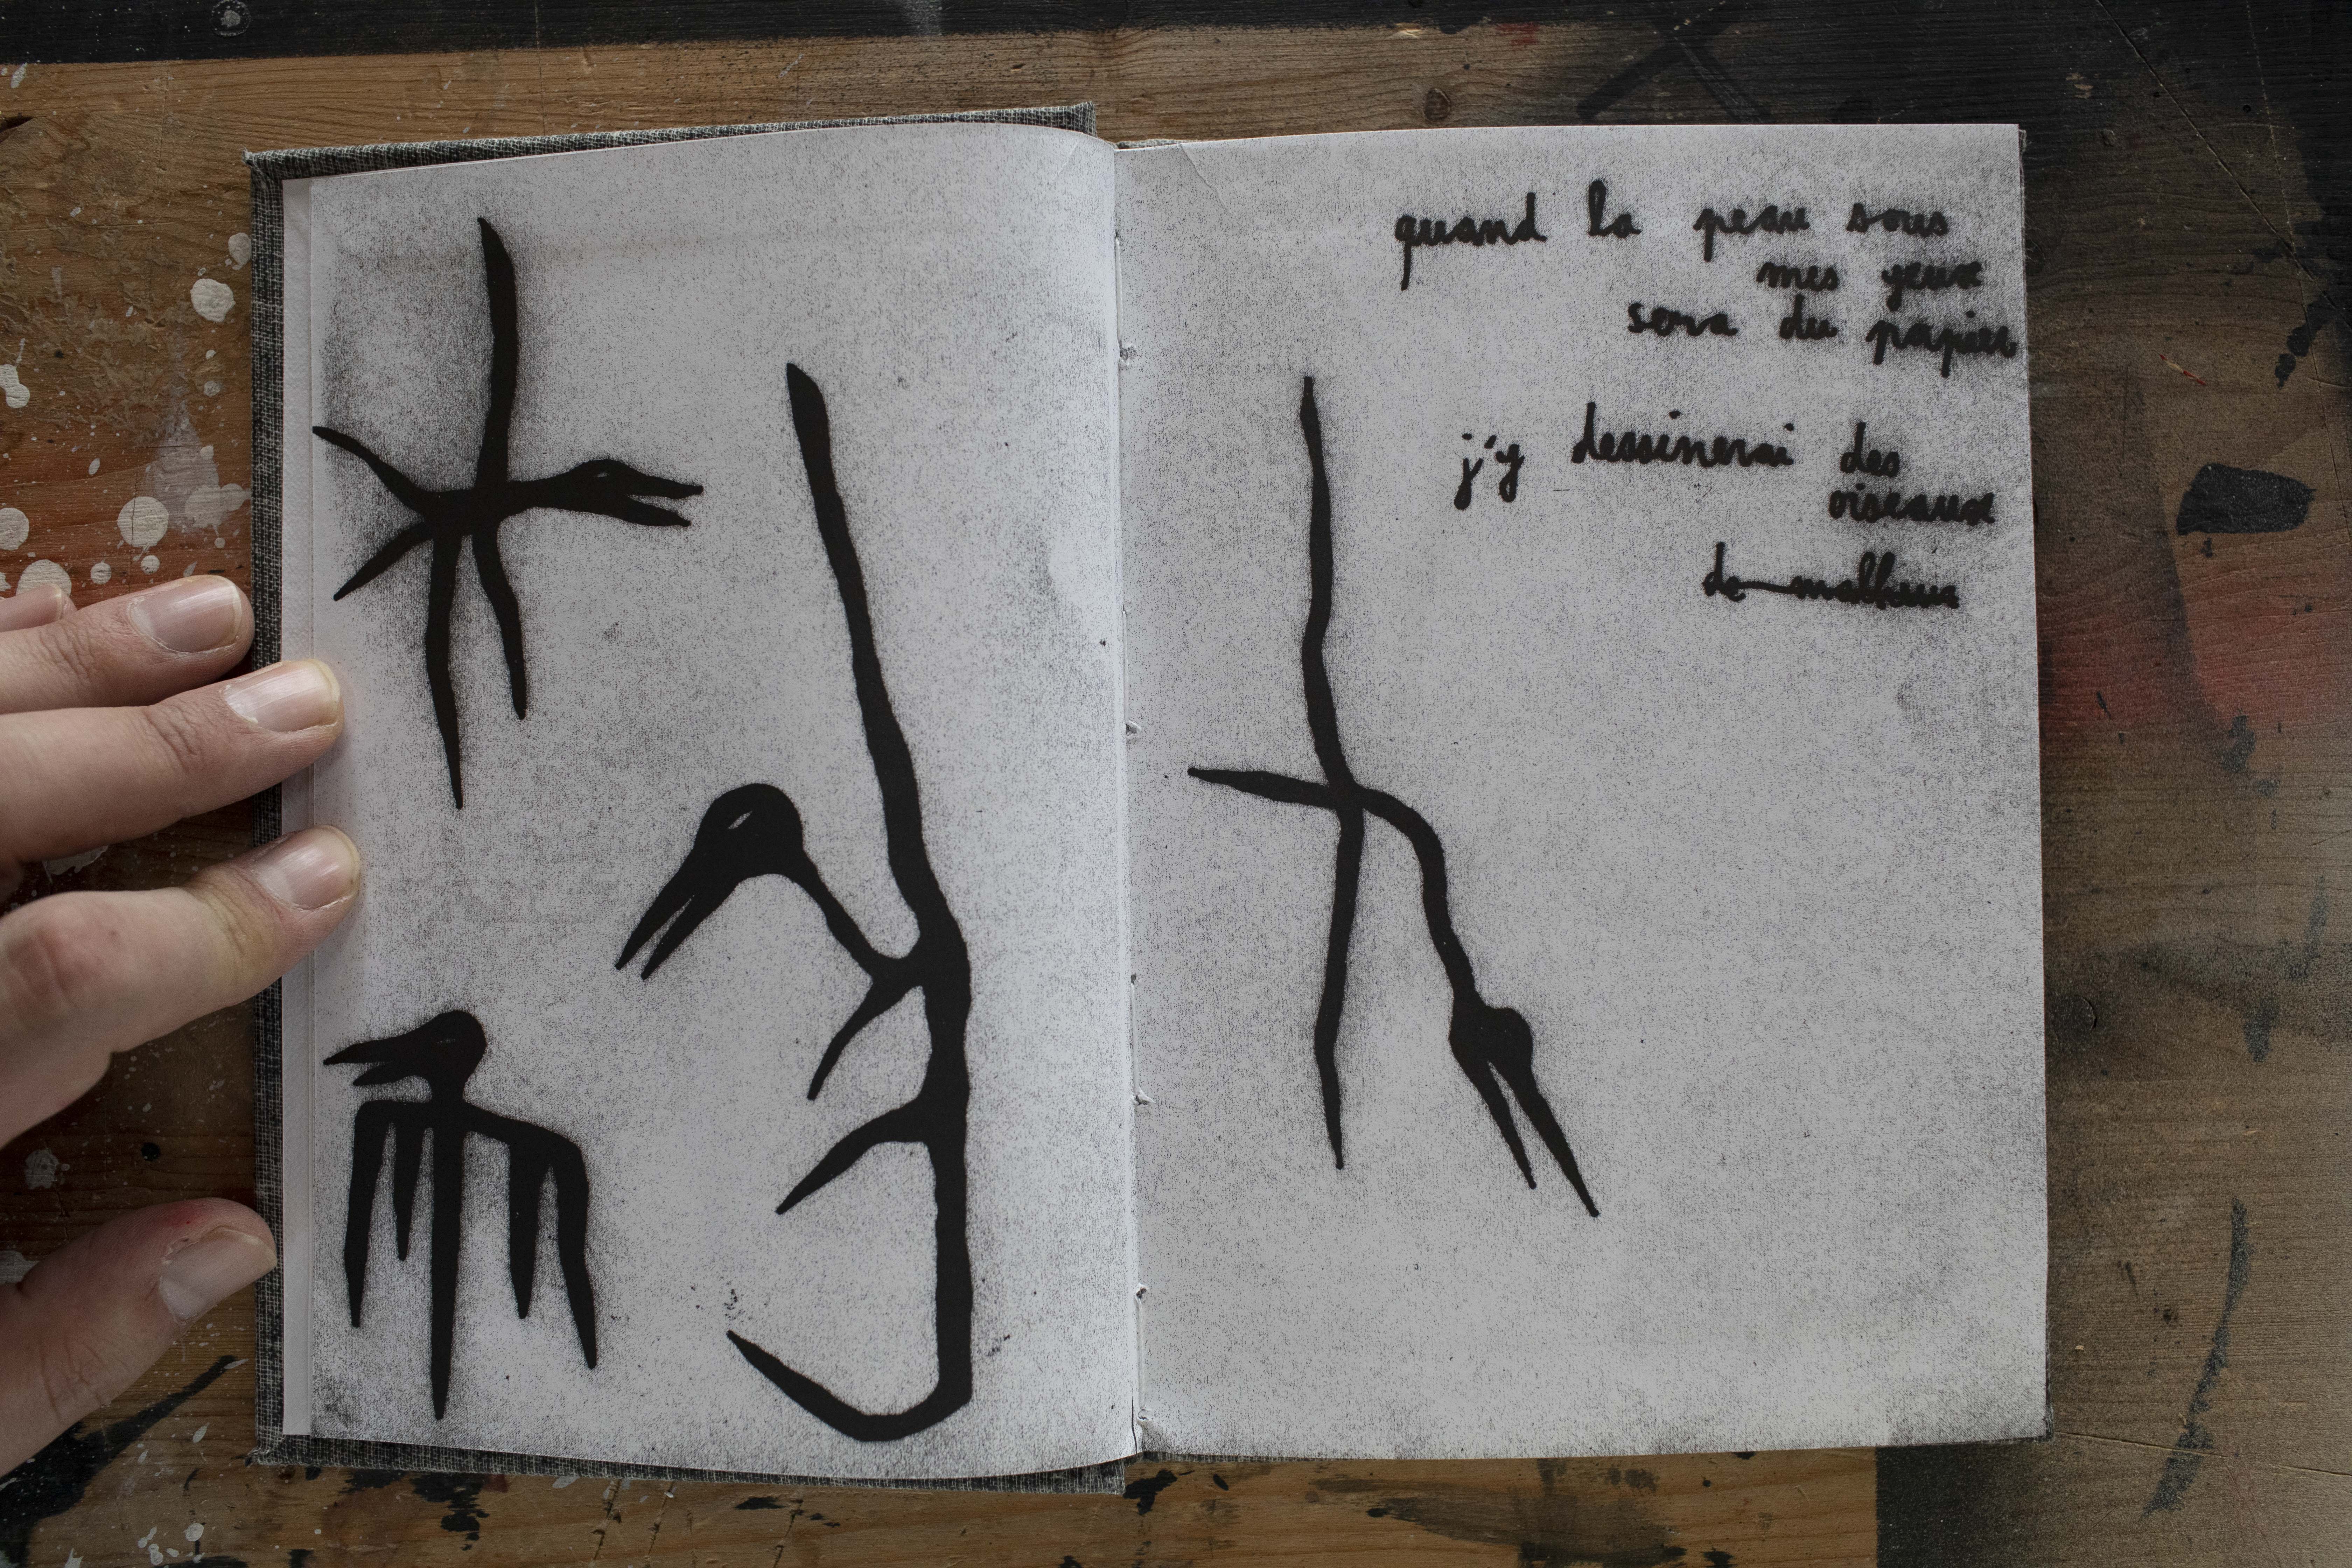 quand la peau sous
mes yeux
sera du papier
j'y dessinerai des
oiseaux
de malheur